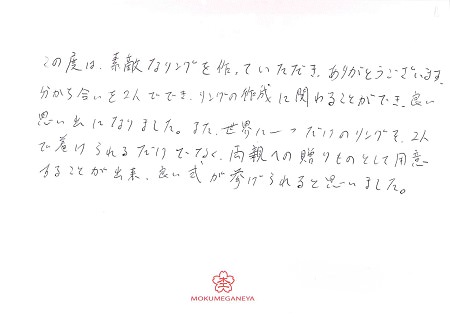 この度は、素敵なリングを作っていただき、ありがとうございます。
分かち合いを2人でき、リングの作成に関わることができ、良い
思い出になりました。また、世界に一つだけのリングを、2人
で着けられるだけでなく、両親への贈りものとして用意
することが出来、良い式が挙げられると思いました。
MOKUMEGANEYA